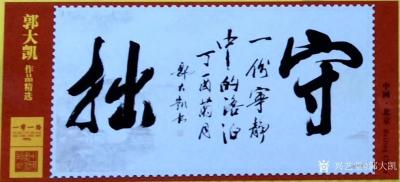 郭大凯
作品精选
一带一路
守拙
一份宁静
中的淡泊
丁酉菊月
郭大凯书
中国·北京 Beijing
兴艺堂@郭大凯